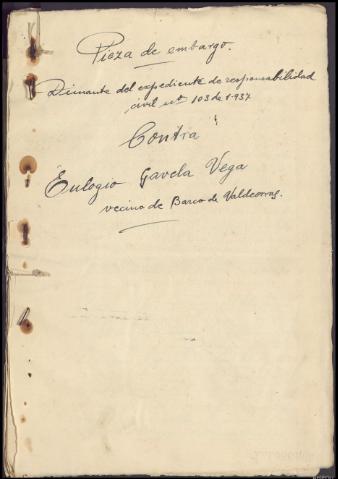 Pieza de embargo.
Dimante del expediente de responsabilidad
civil nº 103 de 1.937
Contra
Eulogio Gavela Vega
vecino de Barco de Valdeorras.